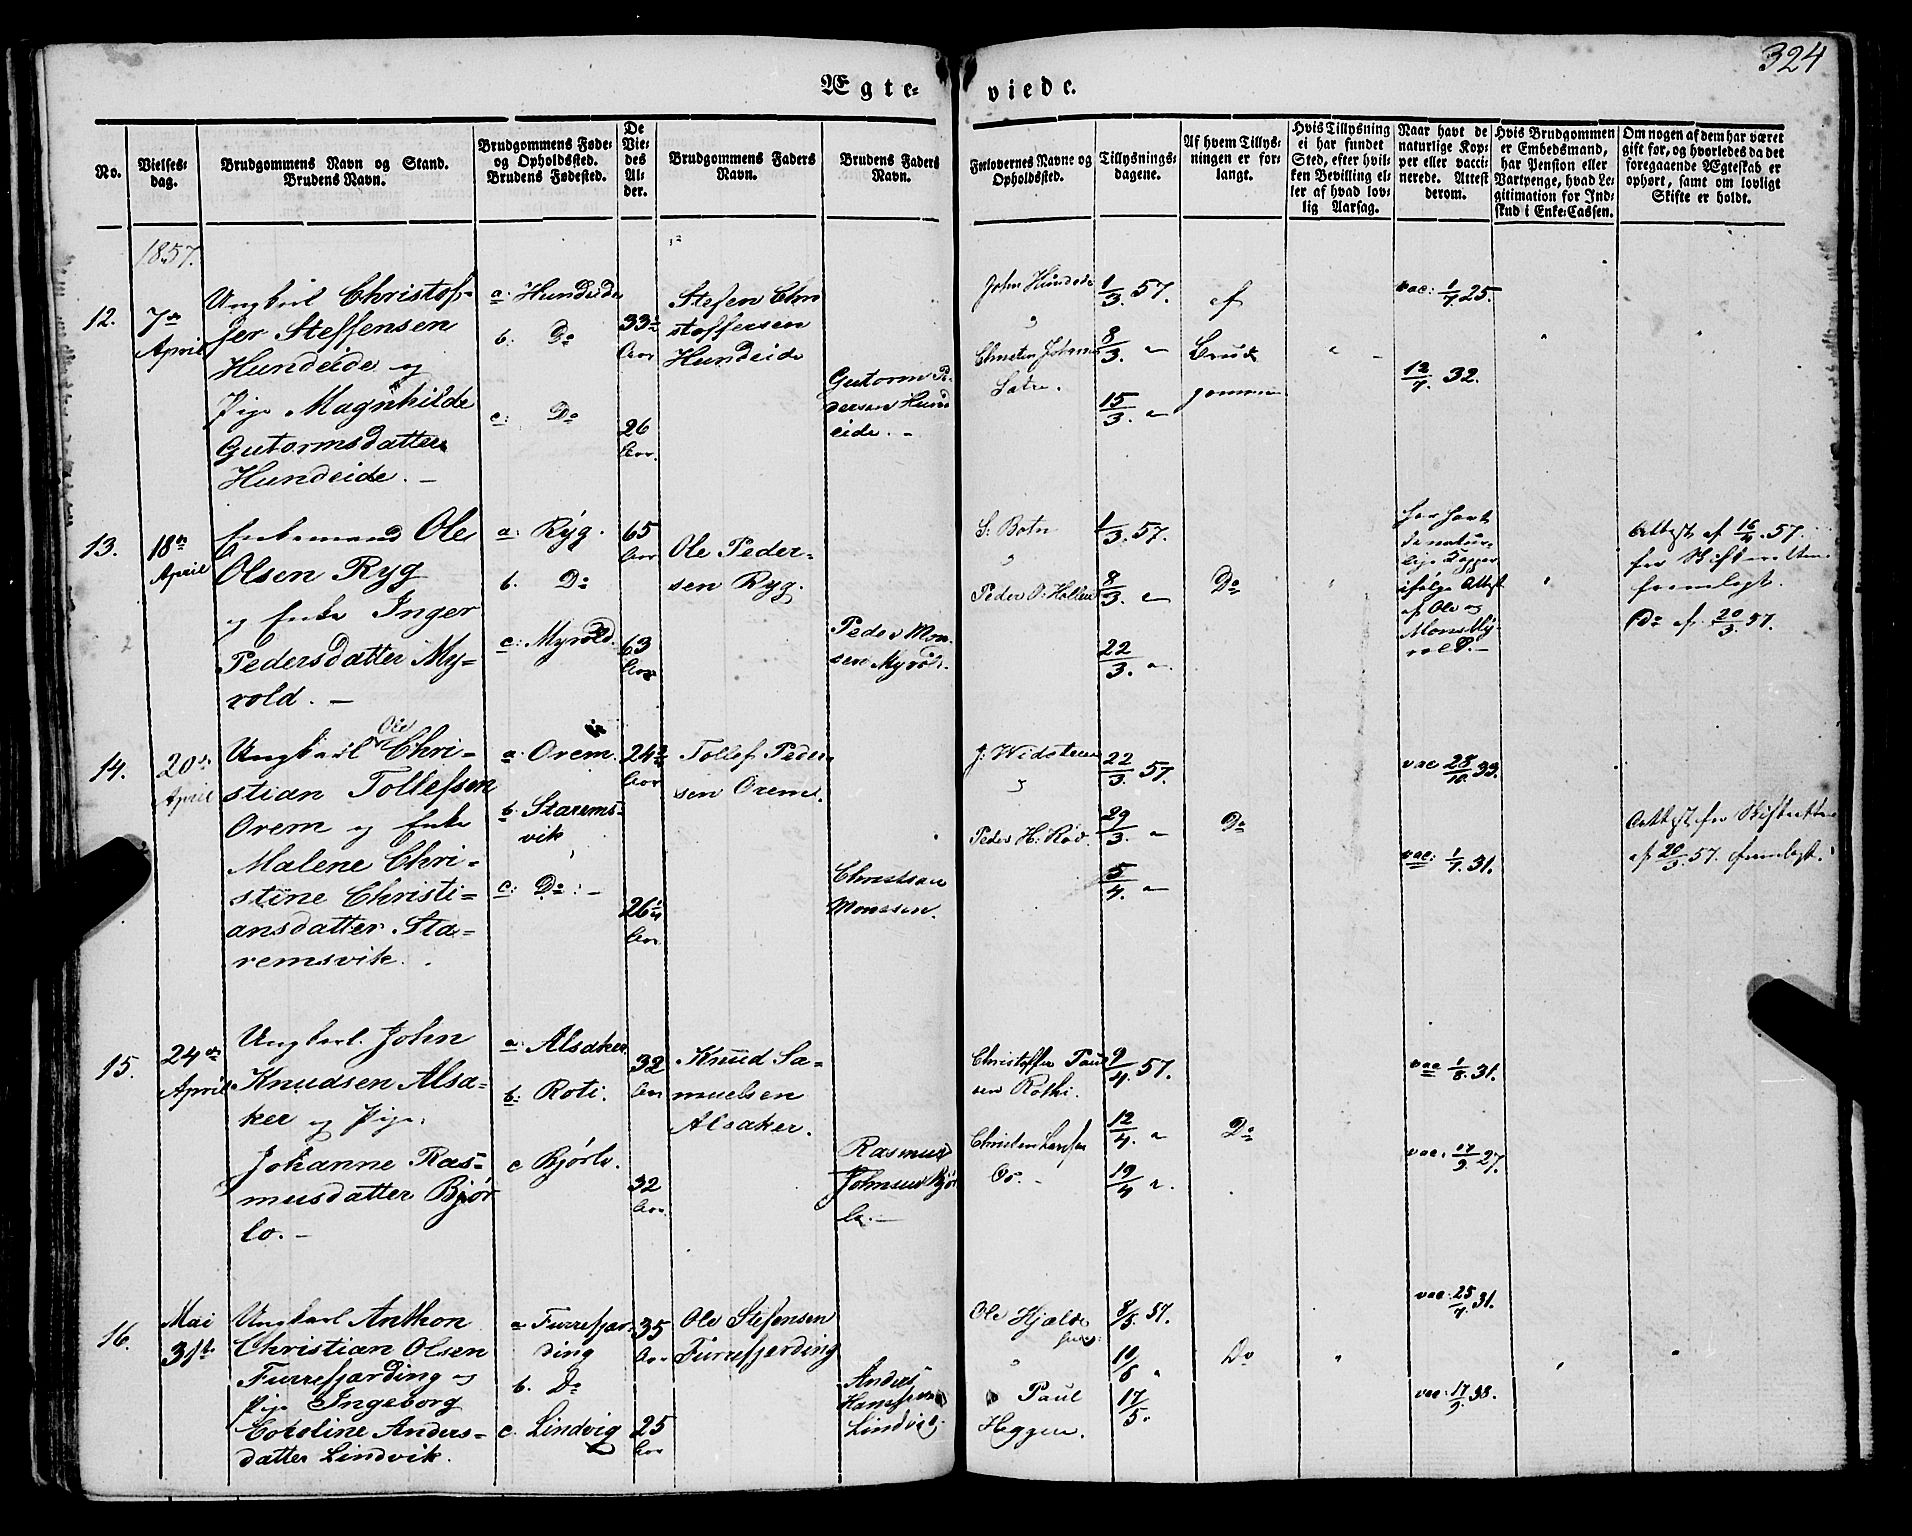 324
Ægte-
viede.
No.
Vielses-
dag.
Brudgommens Navn og Stand.
Brudens Navn.
Brudgommens Føde-
og Opholdssted.
Brudens Fødested.
De
Vie-
des
Al-
der.
Brudgommens Faders
Navn.
Brudens Faders
Navn.
Forlovernes Navne og
Opholdssted.
Tillysnings-
dagene.
Af hvem Tillys-
ningen er for-
langt.
Hvis Tillysning
ei har fundet
Sted, efter hvil-
ken Bevilling el-
ler af hvad lov-
lig Aarsag.
Naar havt de
naturlige Kop-
per eller vacci-
nerede. Attest
derom.
Hvis Brudgommen
er Embedsmand,
har Pension eller
Vartpenge, hvad Le-
gitimation for Ind-
skud i Enke-Cassen.
Om nogen af dem har været
gift for, og hvorledes da det
foregaaende Ægteskab er
ophørt, samt om lovligt
Skifte er holdt.
1857.
12.
7de
April
Ungkarl Christof-
fer Steffensen
Hundeide og
Pige Magnhilde
Gutormsdatter
Hundeide. –
a: Hundeide
b: Do
c: Do
33½
Aar
26
Aar.
Stefen Chri
stoffersen
Hundeide
Gutorm Pe-
dersen Hund
eide. –
John Hundeide
"
Christen Johann
Sætre.
1/3 57.
8/3 "
15/3 "
af
Brud
gommen
vac: 1/7 25.
12/7 32.
13.
18de
April
Enkemand Ole
Olsen Ryg
og Enke Inger
Pedersdatter My-
rold. –
a: Ryg.
b. Do
c: Myrold.
65
Aar
63
Aar
Ole Peder-
sen Ryg.
Peder Mon
sen Myrold.
S. Botn
"
Peder O. Hollen
1/3 57.
8/3 "
22/3 "
Do
har havt
de natur-
lige Kopper
ifølge Attest
af Ole og
Mons My-
rold. –
Attest af 16/4 57.
fra Skifteretten
fremlagt.
Do af 20/3 57.
14.
20de
April
Ungkarl Ole Chri-
stian Tollefsen
Orem og Enke
Malene Chri-
stine Christi-
ansdatter Sta-
remsvik.
a: Orem.
b. Starems-
vik
c: Do: –
24½
Aar
26¼
Aar
Tollef Peder-
sen Orem.
Christian
Monssen.
J. Widsteen
"
Peder H. Rød.
22/3 57.
29/3 "
5/4 "
Do
vac 28/10 33.
vac: 1/7 31.
Attest fra Skifteretten
af 20/3 57. fremlagt.
15.
24de
April
Ungkarl John
Knudsen Alsa-
ker og Pige
Johanne Ras-
musdatter Bjør
lo. –
a: Alsaker
b: Roti.
c Bjørlo.
32
Aar
32
Aar
Knud Sa-
muelsen
Alsaker.
Rasmus
Johnsen Bjør
lo. –
Christoffer Paul
sen Rothi.
Christen Larsen
Os. –
9/4 57.
12/4 "
19/4 "
Do
vac 1/8 31.
vac: 17/9 27.
16.
Mai
31te
Ungkarl Anthon
Christian Olsen
Furrefjærding og
Pige Ingeborg
Caroline Anders-
datter Lindvik.
a: Furrefjær-
ding
b. Do
c. Lindvig
35
Aar
25
Aar
Ole Stefensen
Furrefjerding
Anders
Hanssen
Lindvig.
Ole Hjelde
"
Paul
Heggen.
8/5 57.
10/5 "
17/5 "
Do
vac: 25/7 31.
vac: 17/9 38.